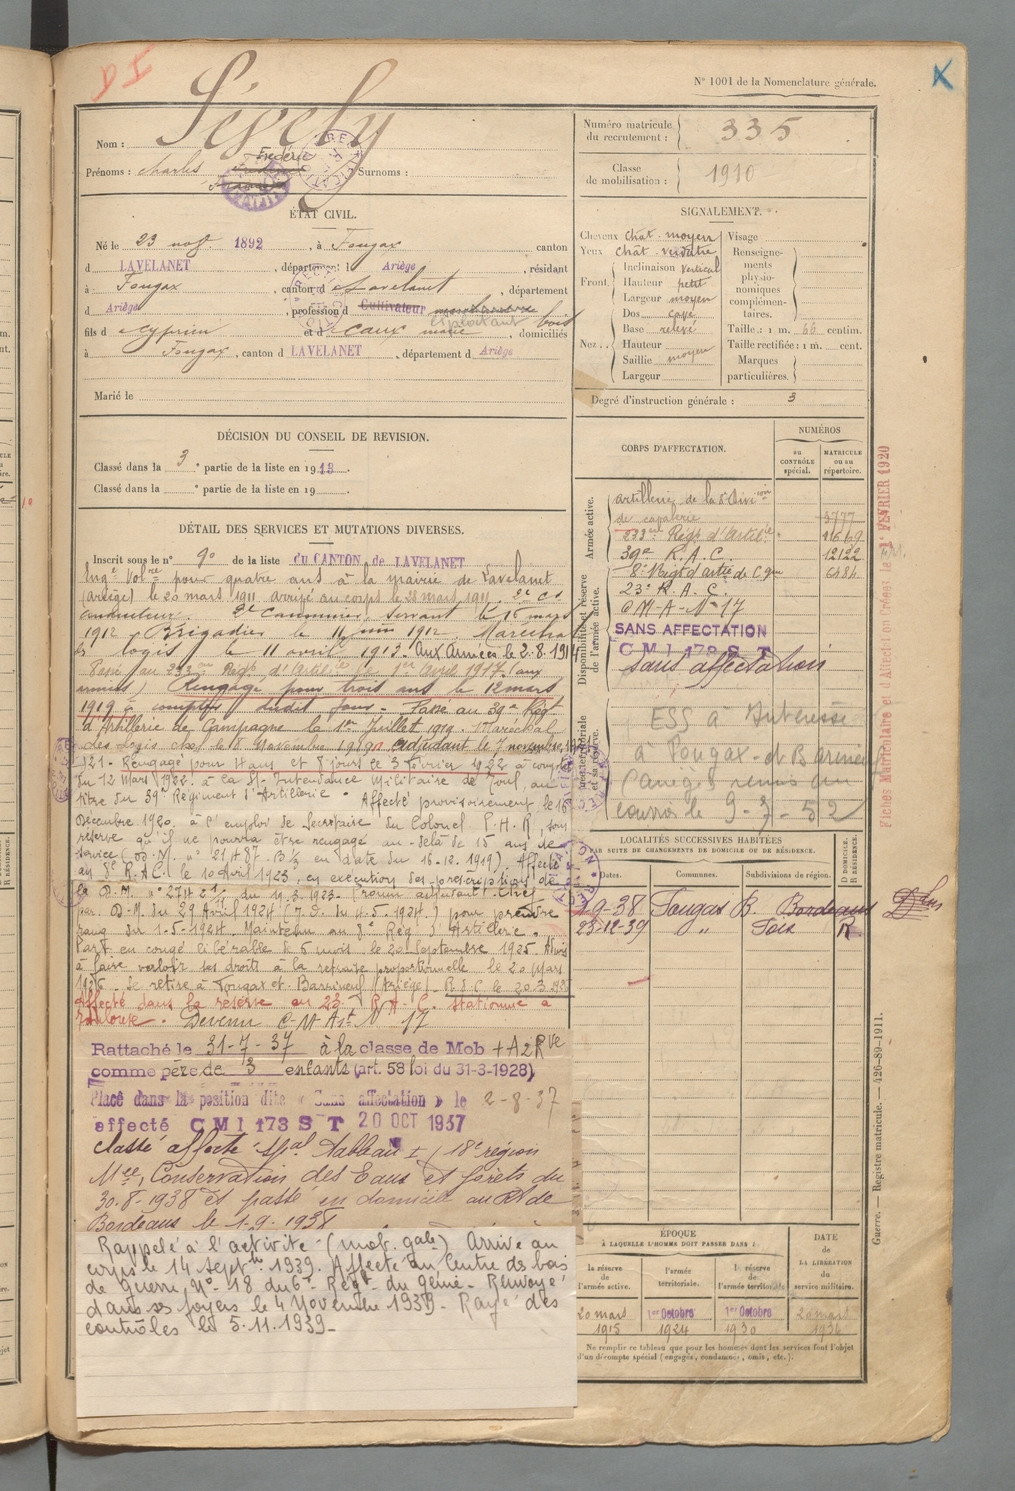 D I
X
N° 1001 de la Nomenclature générale.
Nom : Ségély
Prénoms : Charles Frédéric Surnoms :
Numéro matricule du recrutement : 335
Classe de mobilisation : 1910
ÉTAT CIVIL.
Né le 23 nov. 1892, à Fougax canton
d LAVELANET, département d Ariège, résidant
à Fougax, canton d Lavelanet, département
d Ariège, profession d Cultivateur exploitant bois
fils d e Cyprien et d e Caux marie, domiciliés
à Fougax, canton d LAVELANET, département d Ariège
Marié le
SIGNALEMENT.
Cheveux chat. moyen
Yeux chât. verdâtre
Front. Inclinaison vertical
Hauteur petit
Largeur moyen
Nez. Dos cavé
Base relevé
Hauteur
Saillie moyen
Largeur
Visage
Renseignements physionomiques complémentaires.
Taille : 1 m. 66 centim.
Taille rectifiée : 1 m. cent.
Marques particulières.
Degré d'instruction générale : 3
DÉCISION DU CONSEIL DE REVISION.
Classé dans la 3e partie de la liste en 1913.
Classé dans la e partie de la liste en 19
DÉTAIL DES SERVICES ET MUTATIONS DIVERSES.
Inscrit sous le n° 90 de la liste du CANTON de LAVELANET
Engé Volre pour quatre ans à la mairie de Lavelanet
(Ariège) le 20 mars 1911 arrivé au corps le 28 mars 1911. 2e Cl
conducteur. 2e Canonnier servant le 16 mars
1912 Brigadier le 11 juin 1912. Maréchal
des logis le 11 avril 1913. Aux Armées le 2.8.1914
Passé au 233me Régt d'Artillie le 1er Avril 1917 (aux
armées) Rengagé pour trois ans le 12 mars
1919 à compter dudit jour - Passé au 39e Régt
d'Artillerie de Campagne le 1er Juillet 1919 - Maréchal
des Logis chef le 6 Novembre 1919 adjudant le 7 novembre
1921 - Rengagé pour 4 ans et 8 jours le 3 février 1922 à compter
du 12 Mars 1922. à la St-Intendance Militaire de Toul, au
titre du 39e Régiment d'Artillerie. Affecté provisoirement le 16
Décembre 1920, à l'emploi de Secrétaire du Colonel P.H.R, sous
réserve qu'il ne pourra être rengagé au-delà de 15 ans de
service en date du 16-12-1919). Affecté
au 8e R.A.C. le 10 Avril 1923, en exécution des prescriptions de
la D.M. n° 2742 du 19.3.1923. Promu adjudant Chef
par D.M. du 29 Avril 1924 (J.O. du 4.5.1924) pour prendre
rang du 1-5-1924. Maintenu au 8e Rég. d'Artillerie.
Part en congé libérable de 6 mois le 20 Septembre 1925. Admis
à faire valoir ses droits à la retraite proportionnelle le 20 Mars
1926. Se retire à Fougax et Barrineuf (Ariège).
Affecté dans la réserve au 23e R.A.C. stationné à
Toulouse. Devenu C.M.Art N° 17
Rattaché le 31-7-37 à la classe de Mob
comme père de 3 enfants (art. 58 loi du 31-3-1928)
Placé dans la position dite « Sans affectation » le 2-8-37
affecté CMI 173 ST 20 OCT 1937
Classé affecté Spal Tableau I (18e région
Mce, Conservation des Eaux et forêts du
30.8.1938 et passé en domicile au Rt de
Bordeaux le 1-9-1938
Rappelé à l'activité (mob. gale) Arrivé au
corps le 14 septre 1939. Affecté au Centre des bois
de Guerre N° 18 du 6e Régt du génie. Renvoyé
dans ses foyers le 4 Novembre 1939. Rayé des
contrôles le 5.11.1939-
CORPS D'AFFECTATION.
NUMÉROS
au CONTRÔLE spécial.
MATRICULE ou au répertoire.
Armée active.
artillerie de la 5e Division
de cavalerie 3777
233me Régt d'Artilie
39e R.A.C. 12122
8e Régt d'artie de Cgne 6484
Disponibilité et réserve de l'armée active.
23e R.A.C.
C M-A-N° 17
SANS AFFECTATION
CMI 173 ST
sans affectation
Armée territoriale et sa réserve.
ESS à Intéressé
à Fougax-et Barrineuf
(Ariège) remis au
courrier le 9-7-52
LOCALITÉS SUCCESSIVES HABITÉES
PAR SUITE DE CHANGEMENTS DE DOMICILE OU DE RÉSIDENCE.
Dates. Communes. Subdivisions de région. D DOMICILE. R RÉSIDENCE.
1-9-38 Fougax B. Bordeaux D
23-12-39 " Foix R
ÉPOQUE
À LAQUELLE L'HOMME DOIT PASSER DANS :
la réserve de l'armée active.
l'armée territoriale.
la réserve de l'armée territoriale.
DATE de LA LIBÉRATION du service militaire.
20 mars 1915
1er Octobre 1924
1er Octobre 1930
20 mars 1936
Ne remplir ce tableau que pour les hommes dont les services font l'objet
d'un décompte spécial (engagés, condamnés, omis, etc.).
Fiches Matriculaire et d'Affectation Créées le 1er FÉVRIER 1920
Guerre. — Registre matricule. — 426-89-1911.